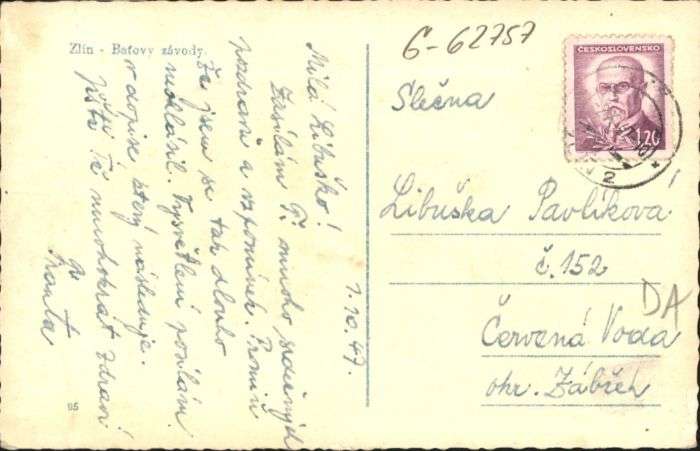 Zlín - Baťovy závody.
1.10.47.
Milá Libuško!
Zasílám Ti mnoho srdečných
pozdravů a vzpomínek. Promiň
že jsem se tak dlouho
neohlásil. Vysvětlení posílám
v dopise který následuje.
Ještě Tě mnohokrát zdraví
Franta
95
6-62757
ČESKOSLOVENSKO
1.20
2
Slečna
Libuška Pavlíková
č. 152
Červená Voda
okr. Zábřeh
DA